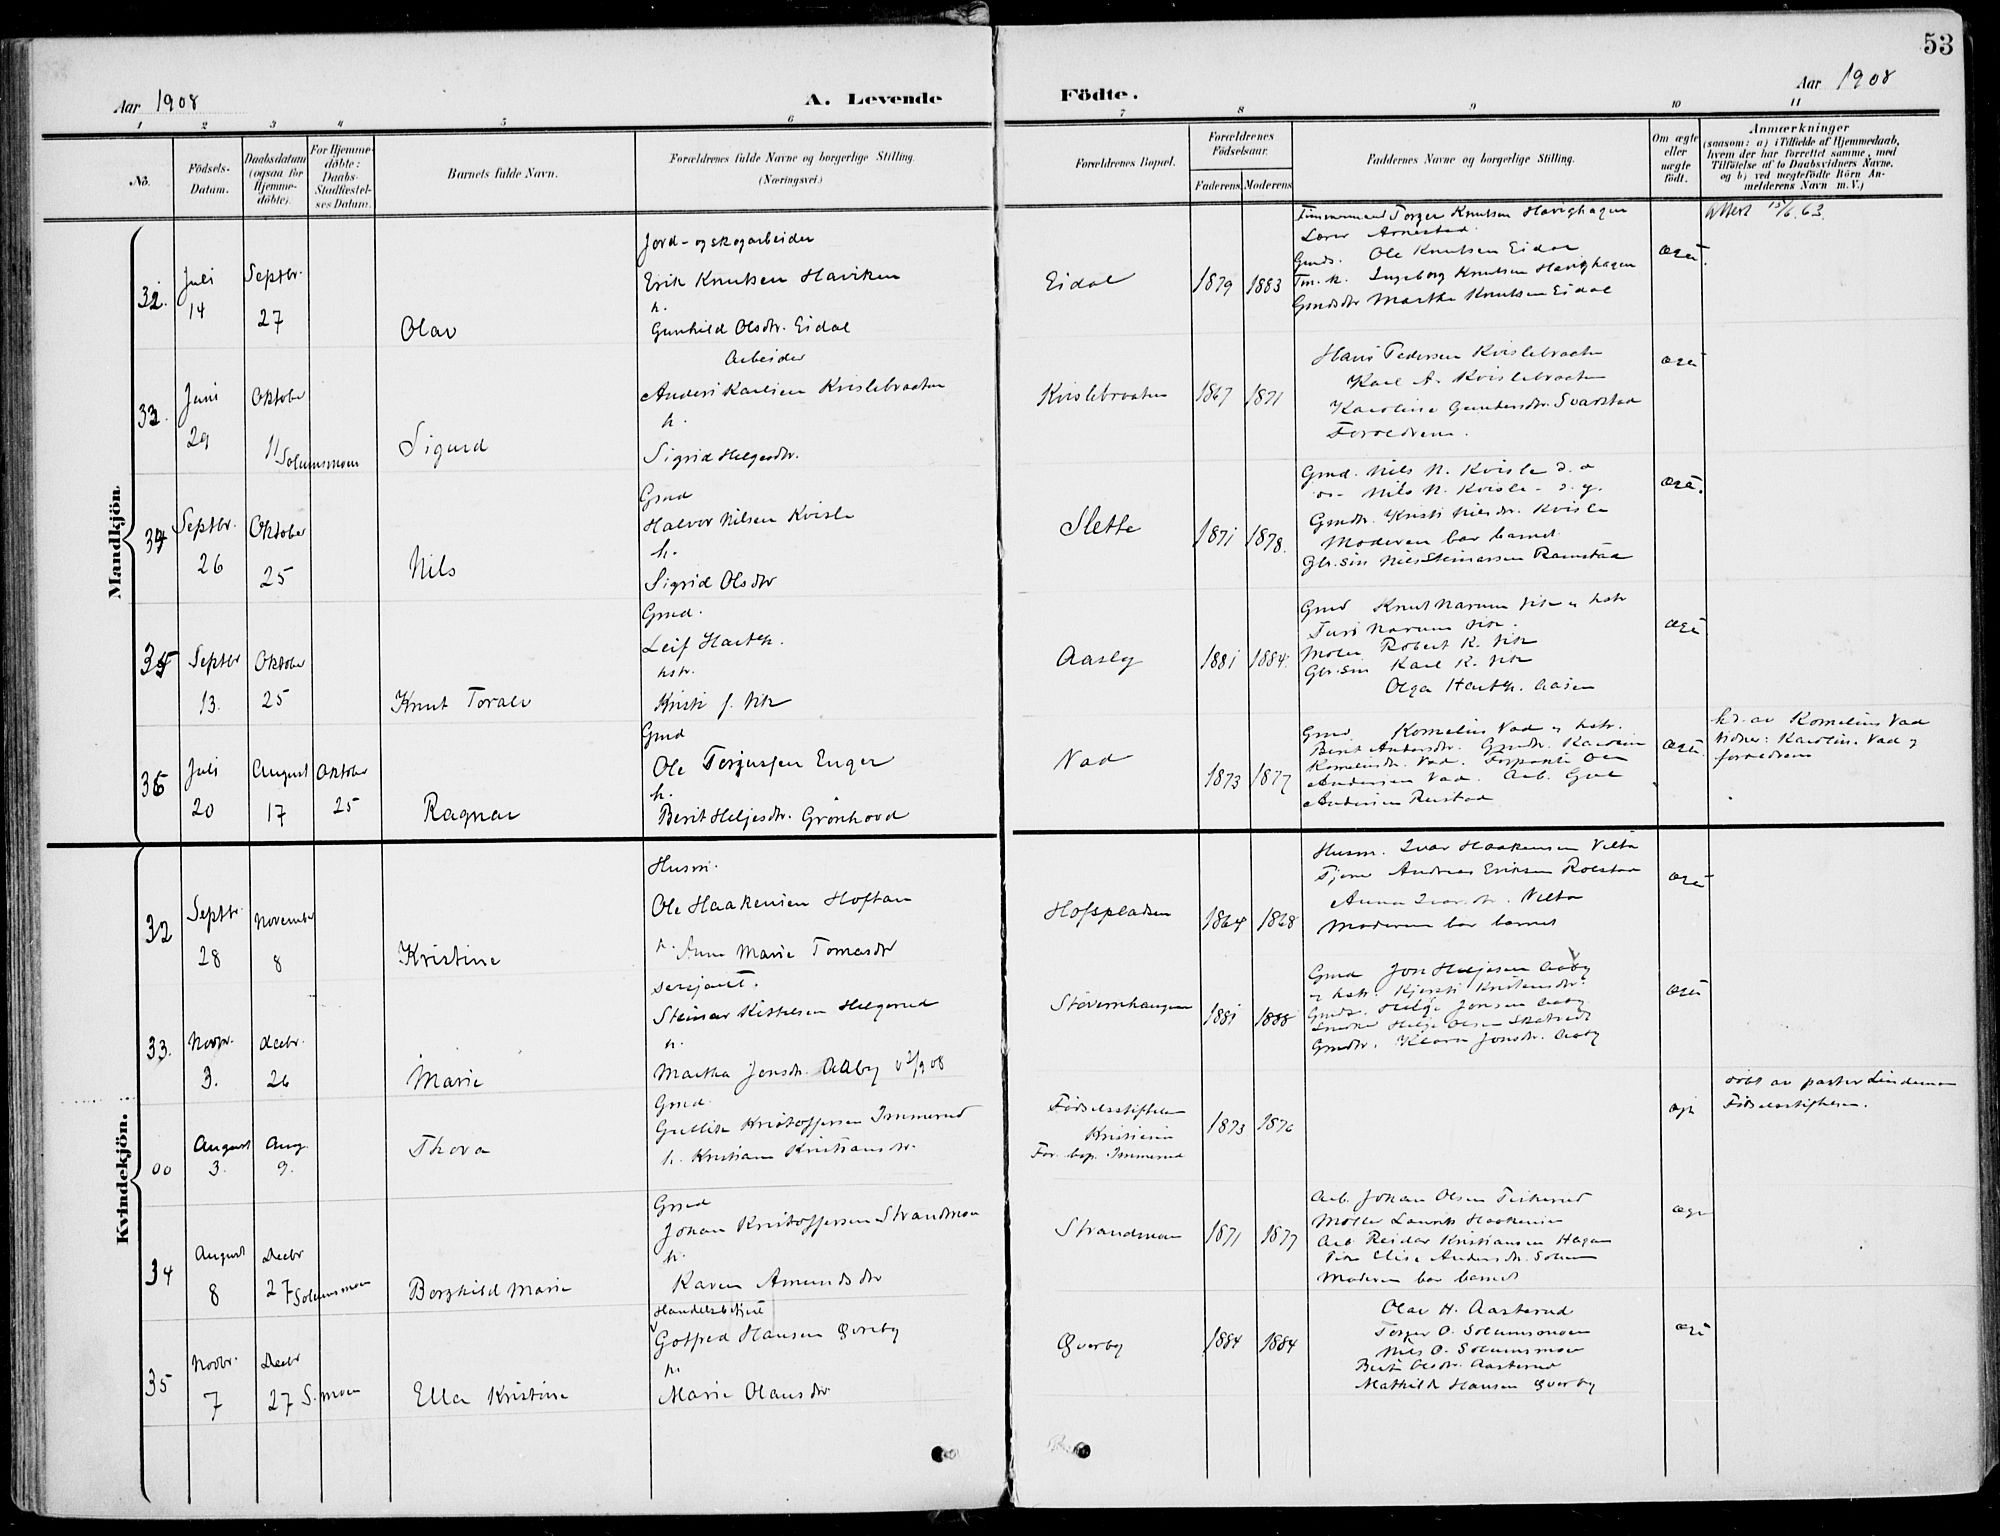 53
Aar 1908
A. Levende
Födte.
Aar 1908
1 2 3 4 5 6 7 8 9 10 11
No.
Födsels-
Datum.
Daabsdatum
(ogsaa for
Hjemme-
döbte).
For Hjemme-
döbte:
Daabs-
Stadfæstel-
ses Datum.
Barnets fulde Navn.
Forældrenes fulde Navne og borgerlige Stilling.
(Næringsvei.)
Forældrenes Bopæl.
Forældrenes
Födselsaar.
Faderens
Moderens
Faddernes Navne og borgerlige Stilling.
Om ægte
eller
uægte
födt.
Anmærkninger
(saasom: a) i Tilfælde af Hjemmedaab,
hvem der har forrettet samme, med
Tilföielse af to Daabsvidners Navne,
og b) ved uægtefödte Börn An-
melderens Navn m. V.)
Mandkjön.
32.
Juli
14
Septbr.
27
Olav
Jord- og skogarbeider
Erik Knutsen Haviken
h.
Gunhild Olsdtr. Eidal
Eidal
1879 1883
Tømmermand Torger Knutsen Havighagen
Lærer Arnestad
Gmds. Ole Knutsen Eidal
Tm. k. Ingeborg Knutsen Havighagen
Gmdsdtr Marthe Knutsen Eidal
ægte.
Attest 15/6.63.
33.
Juni
29
Oktober
11 Solumsmoen
Sigurd
Arbeider
Anders Karlsen Kvislebraaten
h.
Sigrid Helgesdtr.
Kvislebraaten
1867 1871
Hans Pedersen Kvislebraaten
Karl A. Kvislebraaten
Karoline Gundersdtr. Svarstad
Forældrene.
ægte
34
Septbr.
26
Oktober
25
Nils
Gmd
Halvor Nilsen Kvisle
h.
Sigrid Olsdtr
Slette
1871 1878.
Gmd. Nils N. Kvisle d. æ
Nils N. Kvisle d. y.
Gmdtr. Kristi Nilsdtr. Kvisle
Moderen bar barnet
Nils Steinarsen Ramstad
ægte.
35
Septbr
13.
Oktober
25
Knut Toralv
Gmd.
Leif Hart
hstr.
Kristi f. Vik
Aasly
1881 1884.
Gmd Knut Narum Vik og hstr
Turi Narum Vik.
Møller Robert K. Vik
Karl K. Vik
Olga Hart Aasen
ægte
36
Juli
20
August
17
Oktober
25
Ragnar
Gmd
Ole Torjussen Enger
h.
Berit Helgesdtr. Grønhovd
Vad
1873 1877
Gmd. Kornelius Vad og hstr.
Berit Andersdtr. Gmdtr. Karoline
Korneliusdtr. Vad. Ole
Andersen Vad. Arb.
Andersen Rustad
ægte.
hd. av Kornelius Vad
vidner: Karoline Vad og
forældrene
Kvindekjön.
32
Septbr.
28
November
8
Kristine
Husm.
Ole Haakensen Hoftan
h. Anne Marie Tomasdtr
Hofspladsen
1864 1868
Husm. Ivar Haakensen Vilta
Tjener Andreas Eriksen Rolstad
Anna Ivarsdtr. Vilta
Moderen bar barnet
ægte
33.
Novbr.
3.
decbr.
26
Marie
Serjant.
Steinar Kittelsen Helgerud
h.
Martha Jonsdtr. Aaby
Støvernhaugen
1881 1888
Gmd Jon Helgesen Aaby
og hstr. Kjersti Kristensdtr.
Gmds. Helge Jonsen Aaby
Helge Olsen
Gmdtr. Klara Jonsdtr. Aaby
ægte
00
August
3.
Aug.
9.
Thora
Gmd.
Gullik Kristoffersen Immerud
h. Kristiane Kristiansdtr.
Fødselsstiftelsen
Kristiania
For. bop. Immerud
1873 1876
ægte
døbt av pastor Lindeman
Fødselsstiftelsen.
34
August
8
Decbr
27 Solumsmoen
Borghild Marie
Gmd
Johan Kristoffersen Strandmoen
h.
Karen Amundsdtr
Strandmoen
1871 1877
Arb. Johan Olsen
Møller Laurits Haakensen
Arb. Reidar Kristiansen Hagen
Elise Andersdtr. Solum
Moderen bar barnet
ægte
35
Novbr.
7
Decbr
27 S. moen
Ella Kristine
Handelsbetjent
Gotfred Hansen Qverby
h.
Marie Olausdtr
Qverby
1884 1884
Olav H. Aasterud
Torger O. Solumsmoen
Nils O. Solumsmoen
Berte Olsdtr. Aasterud
Mathilde Hansen Qverby
ægte